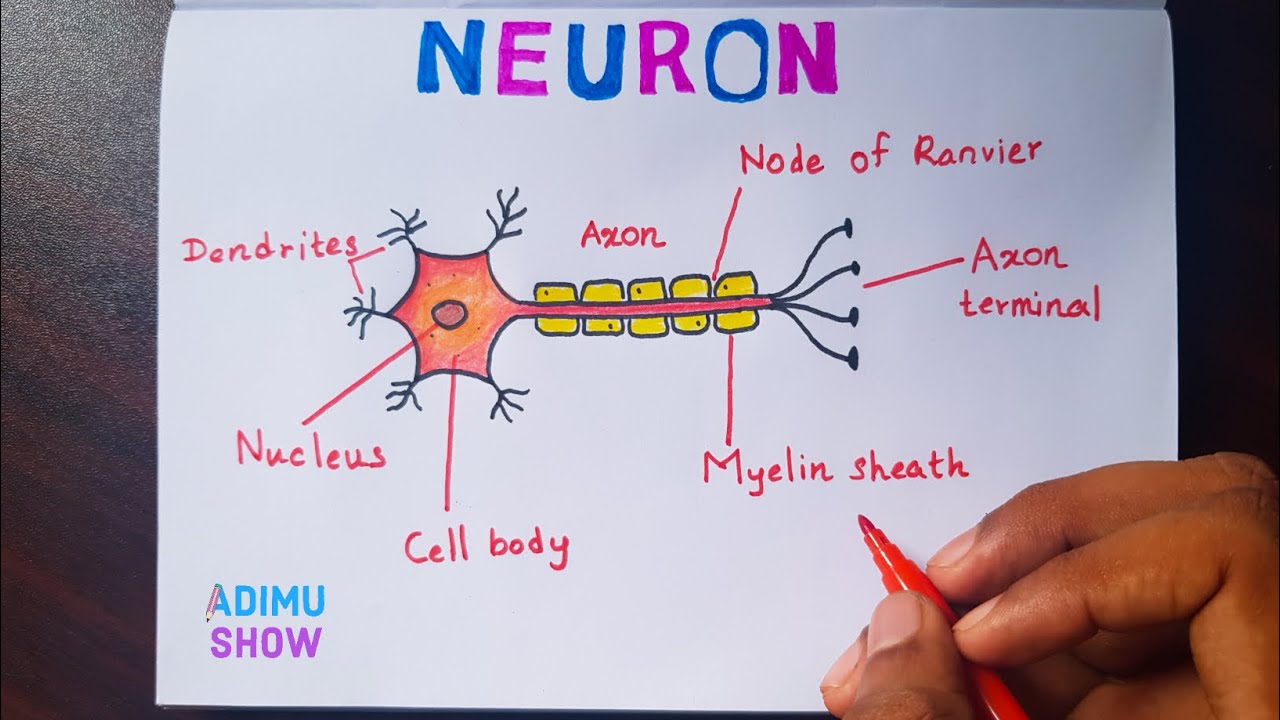 NEURON
Node of Ranvier
Dendrites
Axon
Axon
terminal
Nucleus
Myelin sheath
Cell body
ADIMU
SHOW